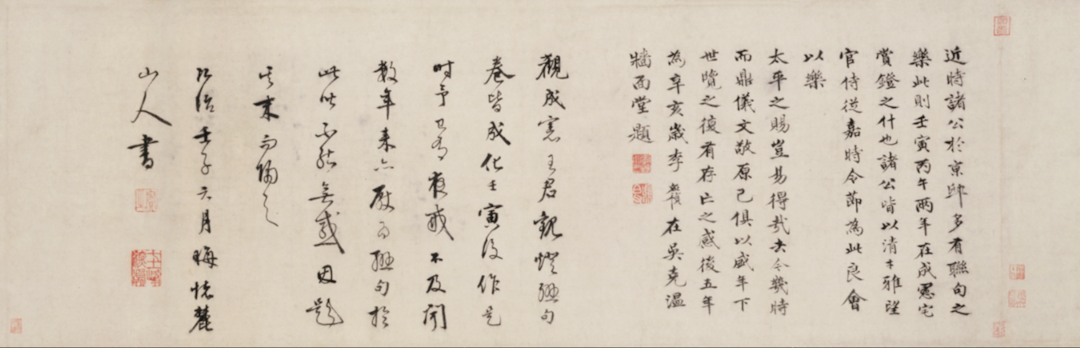 近時諸公於京邸多有聯句之
樂此則壬寅丙午兩年在成憲宅
賞鐙之什也諸公皆以清才雅望
官侍從嘉時令節為此良會
以樂
太平之賜豈易得哉去今幾時
而鼎儀文敬原己俱以盛年下
世覽之復有存亡之感後五年
為辛亥歲李傑在吳堯溫
牆面堂題
觀成憲王君觀燈聯句
卷皆成化壬寅後作是
時予已有夜戒不及聞
數年來亦厭為聯句於
此不能無感因題
其末而歸之
弘治壬子六月晦懷麓
山人書